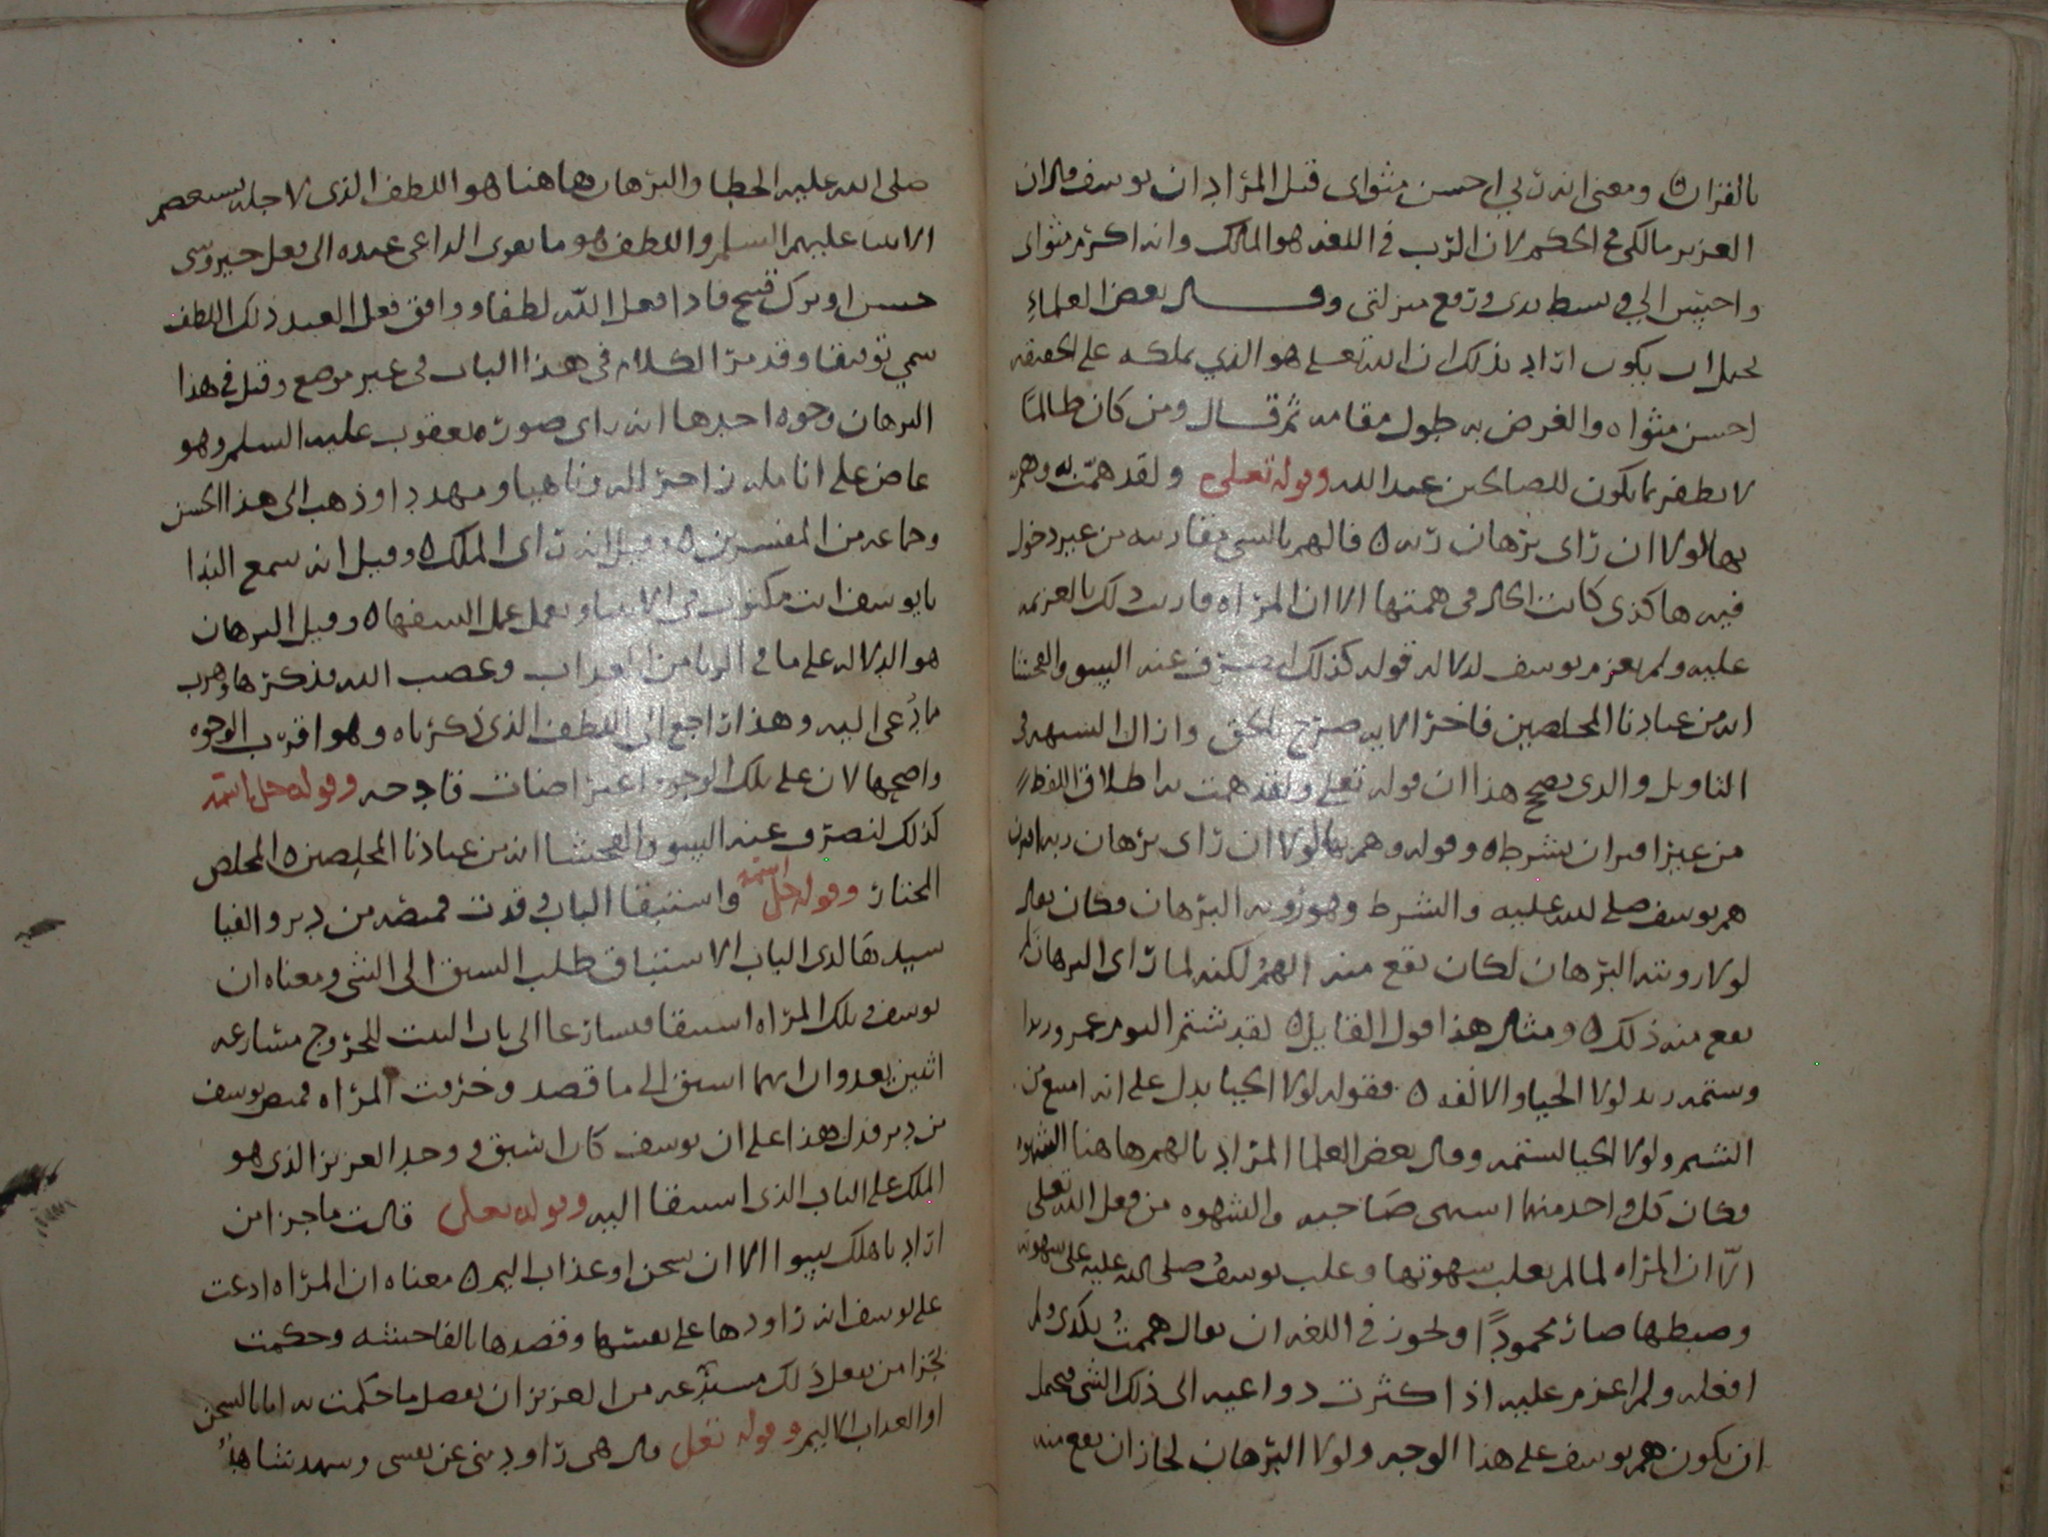 بالقران ومعنى انه ربي احسن مثواى قيل المراد ان يوسف قال ان
العزيز مالكي في الحكم لان الرب في اللغه هو المالك وانه اكرم مثواى
واحسن الي في بسط يدى ورفع منزلتى وقال بعض العلماء
يحتمل ان يكون اراد بذلك ان الله تعلى هو الذي يملكه على الحقيقه
احسن مثواه والغرض به طول مقامه ثم قال ومن كان ظالما
لا يظفر بما يكون للصالحين عند الله وقوله تعلى ولقد همت به وهم
بها لولا ان راى برهان ربه فالهم بالشى مقاربته من غير دخول
فيه هاكذى كانت الحال في همتها الا ان المراه فاربت ذلك بالعزيمه
عليه ولم يعزم يوسف لدلاله قوله كذلك لنصرف عنه السو والفحشا
انه من عبادنا المخلصين فاخر الايه صرح بالحق وازال الشبهه في
التاويل والذى يصحح هذا ان قوله تعلى ولقد همت به اطلاق اللفظ
من غير اقتران بشرط وقوله وهم بها لولا ان راى برهان ربه اقترن
هم يوسف صلى الله عليه والشرط وهو رويه البرهان فكان يقال
لولا رويته البرهان لكان يقع منه الهم لكنه لما راى البرهان لم
يقع منه ذلك ومثال هذا قول القايل لقد شتم اليوم عمرو زيدا
وشتمه زيد لولا الحيا والانفه فقوله لولا الحيا يدل على انه امتنع من
الشتم ولولا الحيا لشتمه وقال بعض العلما المراد بالهم هاهنا الشهوه
فكان كل واحد منهما اشتهى صاحبه والشهوه من فعل الله تعلى
الا ان المراه لما لم يغلب شهوتها وغلب يوسف صلى الله عليه على شهوته
وضبطها صار محمودا ويجوز في اللغه ان يقال هممت بكذى ولم
افعله ولم اعزم عليه اذا كثرت دواعيه الى ذلك الشى فيحتمل
ان يكون هم يوسف على هذا الوجه ولولا البرهان لجاز ان يقع منه
صلى الله عليه الخطا والبرهان هاهنا هو اللطف الذى لاجله يستعصم
الانبيا عليهم السلم واللطف هو ما يقوى الداعى عنده الى فعل
حسن او ترك قبيح فاذا فعل الله لطفا ووافق فعل العبد ذلك اللطف
سمي توفيقا وقد مر الكلام في هذا الباب في غير موضع وقيل في هذا
البرهان وجوه احدها انه راى صوره يعقوب عليه السلم وهو
عاض على انامله زاجرا له وناهيا ومهددا وذهب الى هذا الحسن
وجماعه من المفسرين وقيل انه راى الملك وقيل انه سمع الندا
يا يوسف انت مكتوب في الانبيا وتعمل عمل السفها وقيل البرهان
هو الدلاله على ما في الزنا من العذاب وغضب الله فذكرها وهرب
مما دعى اليه وهذا راجع الى اللطف الذى ذكرناه وهو اقرب الوجوه
واصحها لان على تلك الوجوه اعتراضات قادحه وقوله جل اسمه
كذلك لنصرف عنه السو والفحشا انه من عبادنا المخلصين المخلص
المختار وقوله جل اسمه واستبقا الباب وقدت قميصه من دبر والفيا
سيدها لدى الباب الاستباق طلب السبق الى الشى ومعناه ان
يوسف وتلك المراه استبقا فتسارعا الى باب البيت للخروج مسارعه
اثنين يعدوان ايهما اسبق الى ما قصد وخرقت المراه قميص يوسف
من دبر فدل هذا على ان يوسف كان اسبق ووجد العزيز الذى هو
الملك على الباب الذى استبقا اليه وقوله تعلى قالت ما جزا من
اراد باهلك سوا الا ان يسجن او عذاب اليم معناه ان المراه ادعت
على يوسف انه راودها على نفسها وقصدها بالفاحشه وحكمت
بجزا من يفعل ذلك مستدعيه من العزيز ان يفعل ما حكمت به اما بالسجن
او العذاب الاليم وقوله تعلى قال هى راودتنى عن نفسى وشهد شاهد